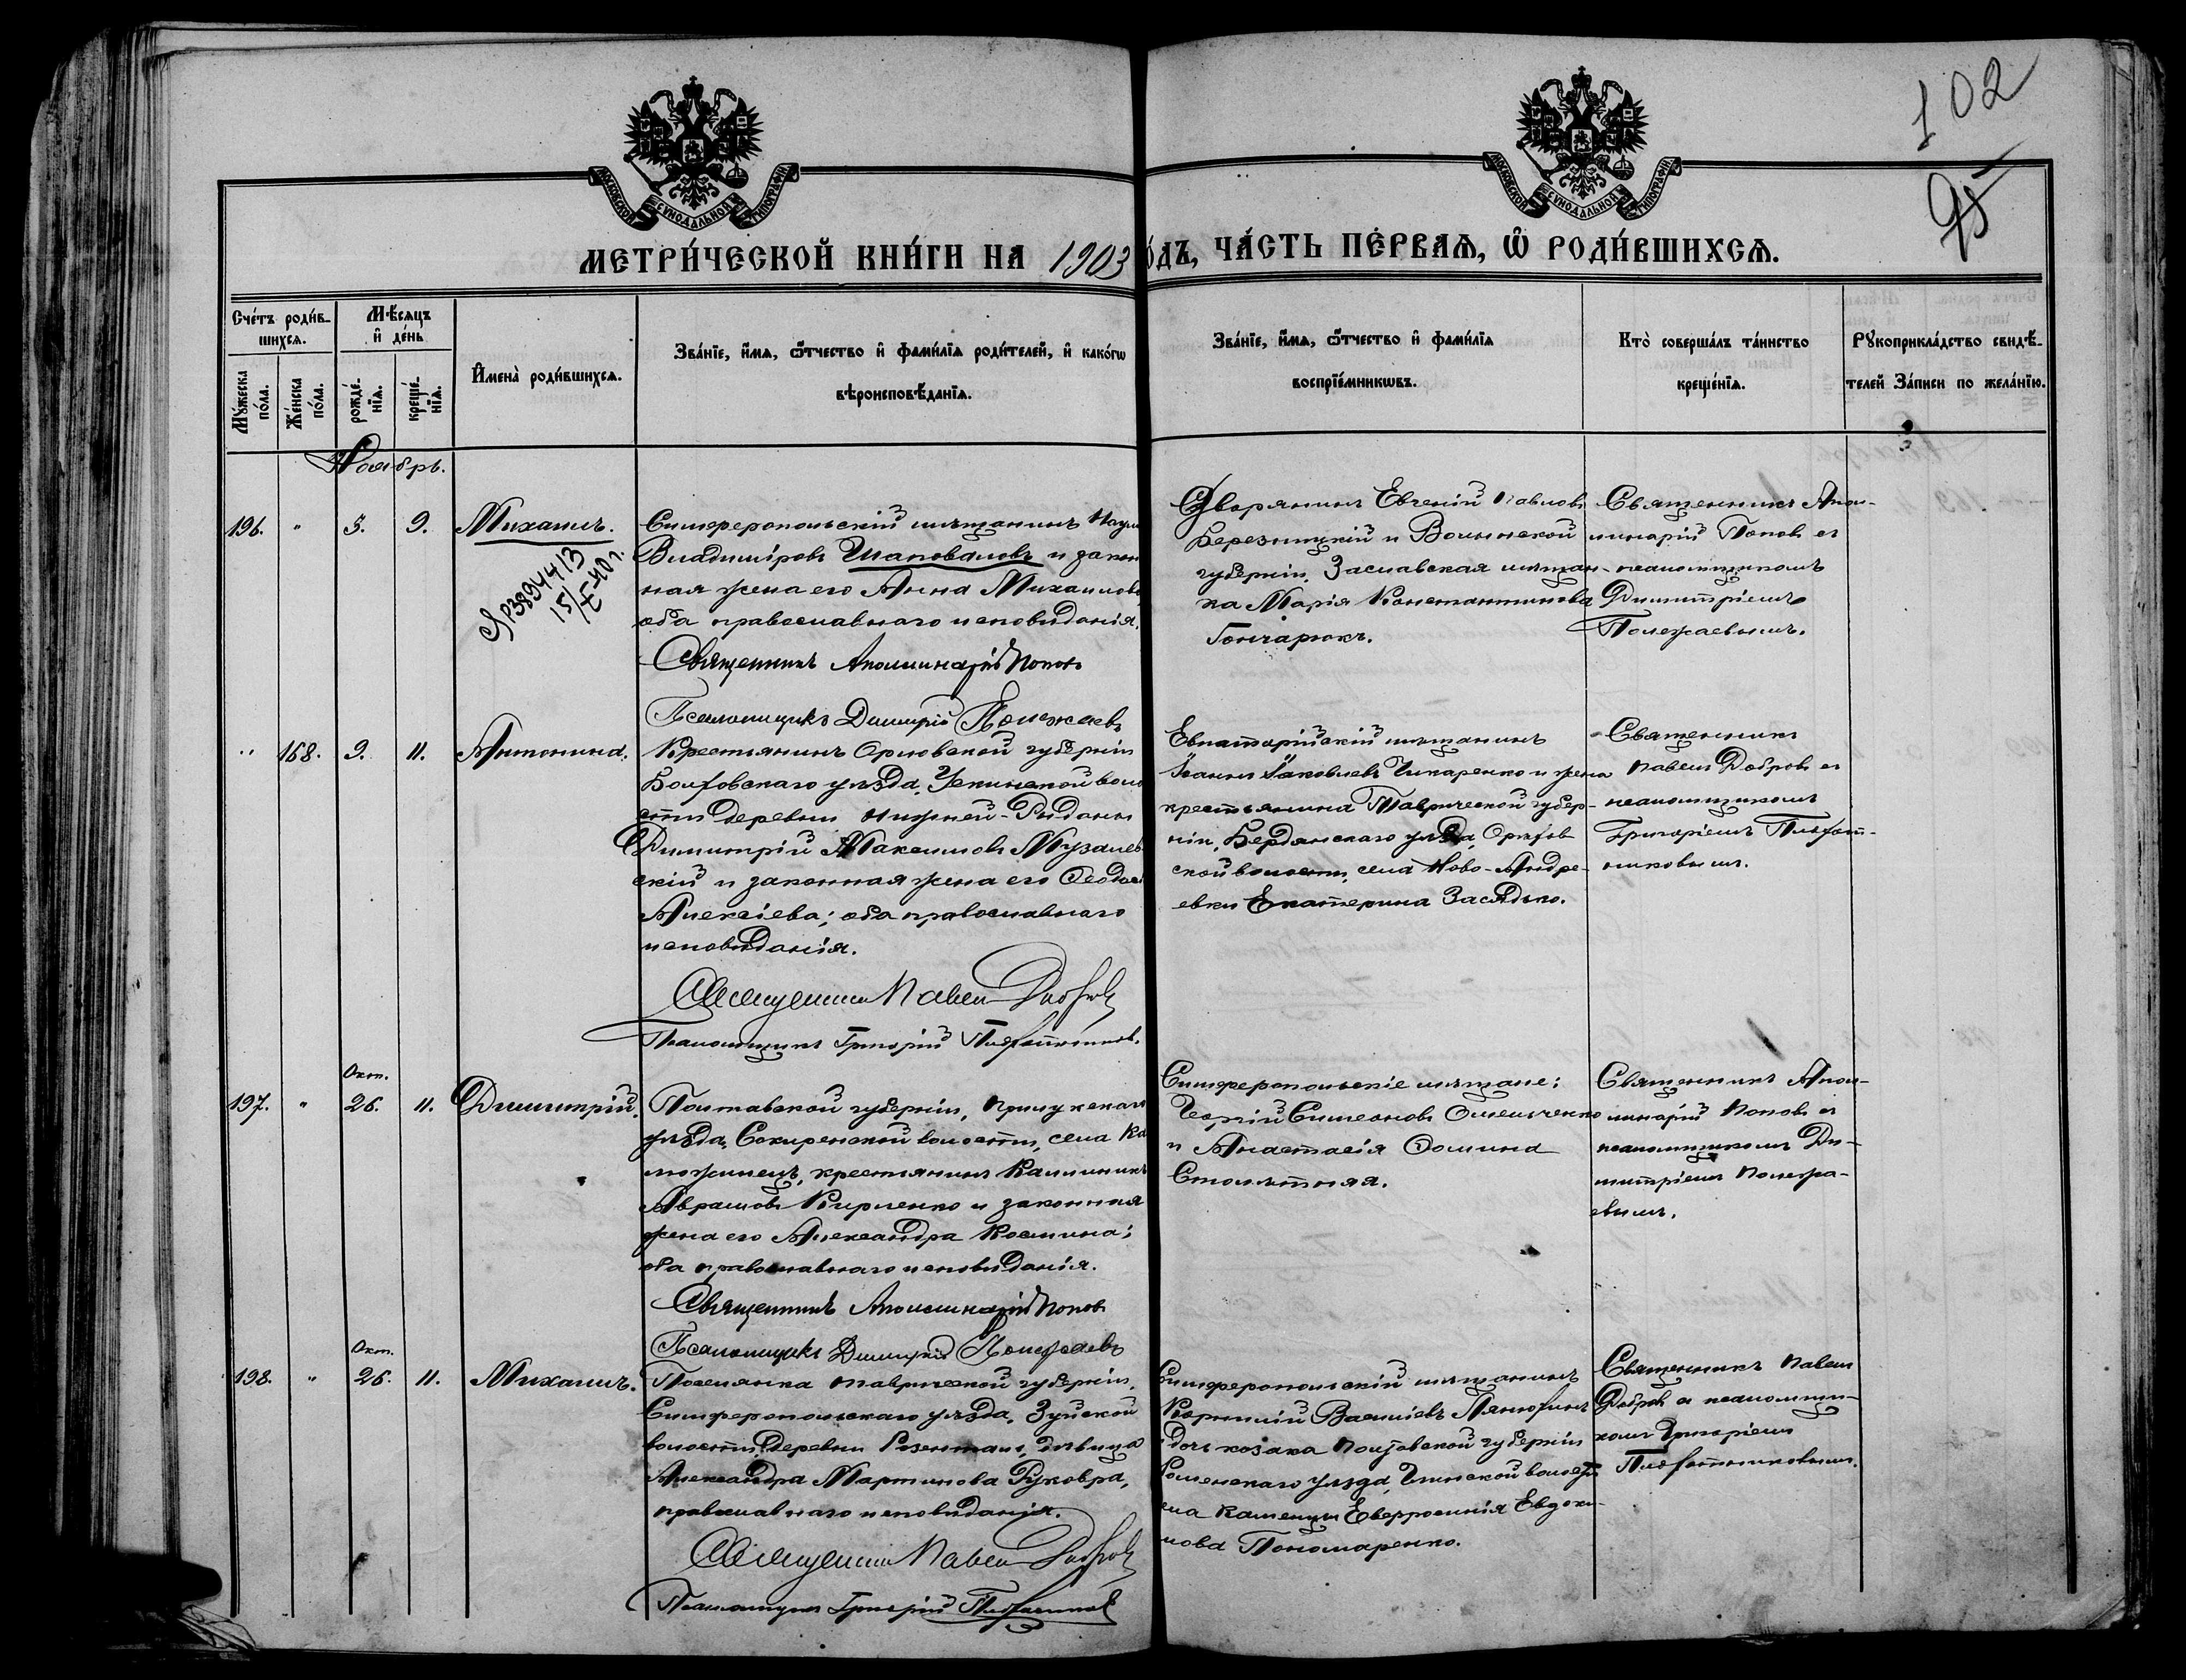 102
95
МОСКОВСКОЙ СѴНОДАЛЬНОЙ ТИПОГРАФІИ
МОСКОВСКОЙ СѴНОДАЛЬНОЙ ТИПОГРАФІИ
МЕТРИ́ЧЕСКОЙ КНИ́ГИ НА 1903 ГО́ДЪ, ЧА́СТЬ ПЕ́РВАѦ, Ѿ РОДИ́ВШИХСѦ.
Сче́тъ роди́в-
шихсѧ.
Мѣ́сѧцъ
и҆ де́нь
Мꙋ́жеска
по́ла.
Же́нска
по́ла.
рожде́-
нїѧ.
креще́-
нїѧ.
И҆мена̀ роди́вшихсѧ.
Зва́нїе, и҆́мѧ, ѻ҆́тчество и҆ фами́лїѧ роди́телей, и҆ како́гѡ
вѣроисповѣ́данїѧ.
Зва́нїе, и҆́мѧ, ѻ҆́тчество и҆ фами́лїѧ
воспрїе́мникѡвъ.
Кто̀ соверша́лъ та́инство
креще́нїѧ.
Рꙋкоприкла́дство свидѣ́-
телей За́писи по жела́нїю.
Ноябрь.
196. " 5. 9. Михаилъ.
15/I-40 г.
Симферопольскій мѣщанинъ Наумъ
Владиміровъ Шаповаловъ и закон
ная жена его Анна Михаилова
оба православнаго исповѣданія.
Священникъ Аполлинарій Поповъ
Псаломщикъ Димитрій Полежаевъ
Дворянинъ Евгеній Павловъ
Березницкій и Волынской
губерніи, Заславская мѣщан-
ка Марія Константинова
Гончарюкъ.
Священникъ Апол-
линарій Поповъ съ
псаломщикомъ
Димитріемъ
Полежаевымъ.
" 168. 9. 11. Антонина.
Крестьянинъ Орловской губерніи
Болховскаго уѣзда, воло
сти деревни Нижней-
Димитрій Максимовъ Музалев
скій и законная жена его Ѳеодосія
Алексіева; оба православнаго
исповѣданія.
Священникъ Павелъ Добровъ
Псаломщикъ Григорій Плохотниковъ.
Евпаторійскій мѣщанинъ
Іоаннъ Іаковлевъ Чикаренко и жена
крестьянина Таврической губер-
ніи, Бердянскаго уѣзда, Орѣхов
ской волости, села Ново-Андре-
евки Екатерина Засядько.
Священникъ
Павелъ Добровъ съ
псаломщикомъ
Григоріемъ Плохот-
никовымъ.
Окт.
197. " 26. 11. Димитрій.
Полтавской губерніи, Прилукскаго
уѣзда, Сокиренской волости, села Ка
люжинецъ, крестьянинъ Каллиникъ
Аврамовъ Кирленко и законная
жена его Александра Космина;
оба православнаго исповѣданія.
Священникъ Аполлинарій Поповъ
Псаломщикъ Димитрій Полежаевъ
Симферопольскіе мѣщане:
Георгій Симеоновъ Омельченко
и Анастасія Ѳомина
Столѣтняя.
Священникъ Апол-
линарій Поповъ съ
псаломщикомъ Ди-
митріемъ Полежа-
евымъ.
Окт.
198. " 26. 11. Михаилъ.
Поселянка Таврической губерніи,
Симферопольскаго уѣзда, Зуйской
волости, деревни Розенталь, дѣвица
Александра Мартинова
православнаго исповѣданія.
Священникъ Павелъ Добровъ
Псаломщикъ Григорій Плохотниковъ
Симферопольскій мѣщанинъ
Корнилій Василіевъ Панюхинъ
дочь козака Полтавской губерніи
Роменскаго уѣзда, Глинской волости
села Каменцы Евфросинія Евдоки-
мова Пономаренко.
Священникъ Павелъ
Добровъ съ псаломщи-
комъ Григоріемъ
Плохотниковымъ.